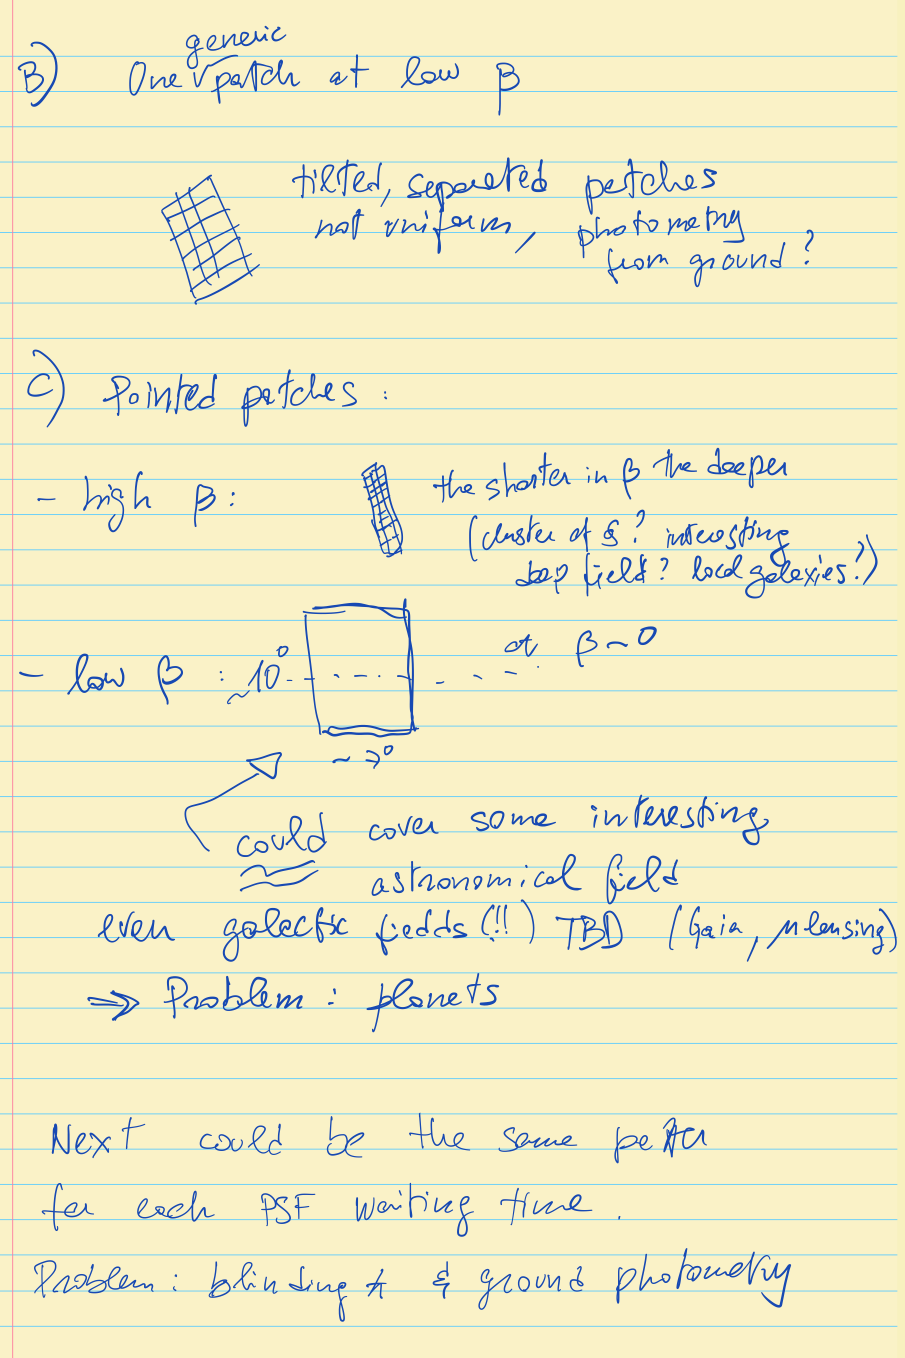 B) One generic patch at low β
tilted, separated patches
not uniform, photometry
from ground?
C) Pointed patches:
- high β: the shorter in β the deeper
(cluster of § ? interesting
deep field? local galaxies?)
- low β : ~10° at β ~ 0
~ 7°
could cover some interesting
astronomical field
even galactic fields (!!) TBD (Gaia, μlensing)
⇒ Problem: planets
Next could be the same patch
for each PSF waiting time.
Problem: blinding & ground photometry